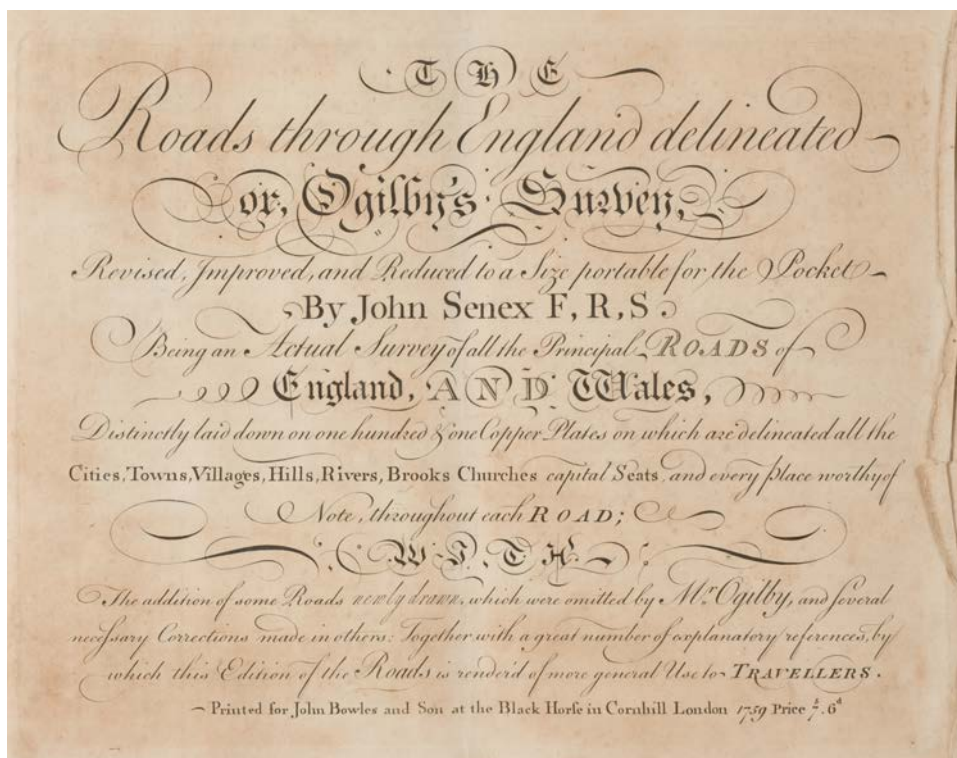 THE
Roads through England delineated
or, Ogilby's Survey,
Revised, Improved, and Reduced to a Size portable for the Pocket
By John Senex F,R,S.
Being an Actual Survey of all the Principal ROADS of
England, AND Wales,
Distinctly laid down on one hundred & one Copper Plates on which are delineated all the
Cities, Towns, Villages, Hills, Rivers, Brooks Churches capital Seats, and every place worthy of
Note, throughout each ROAD;
WITH
The addition of some Roads newly drawn, which were omitted by Mr. Ogilby, and ſeveral
neceſsary Corrections made in others: Together with a great number of explanatory references, by
which this Edition of the Roads is render'd of more general Use to TRAVELLERS.
Printed for John Bowles and Son at the Black Horſe in Cornhill London 1759 Price 7s. 6d